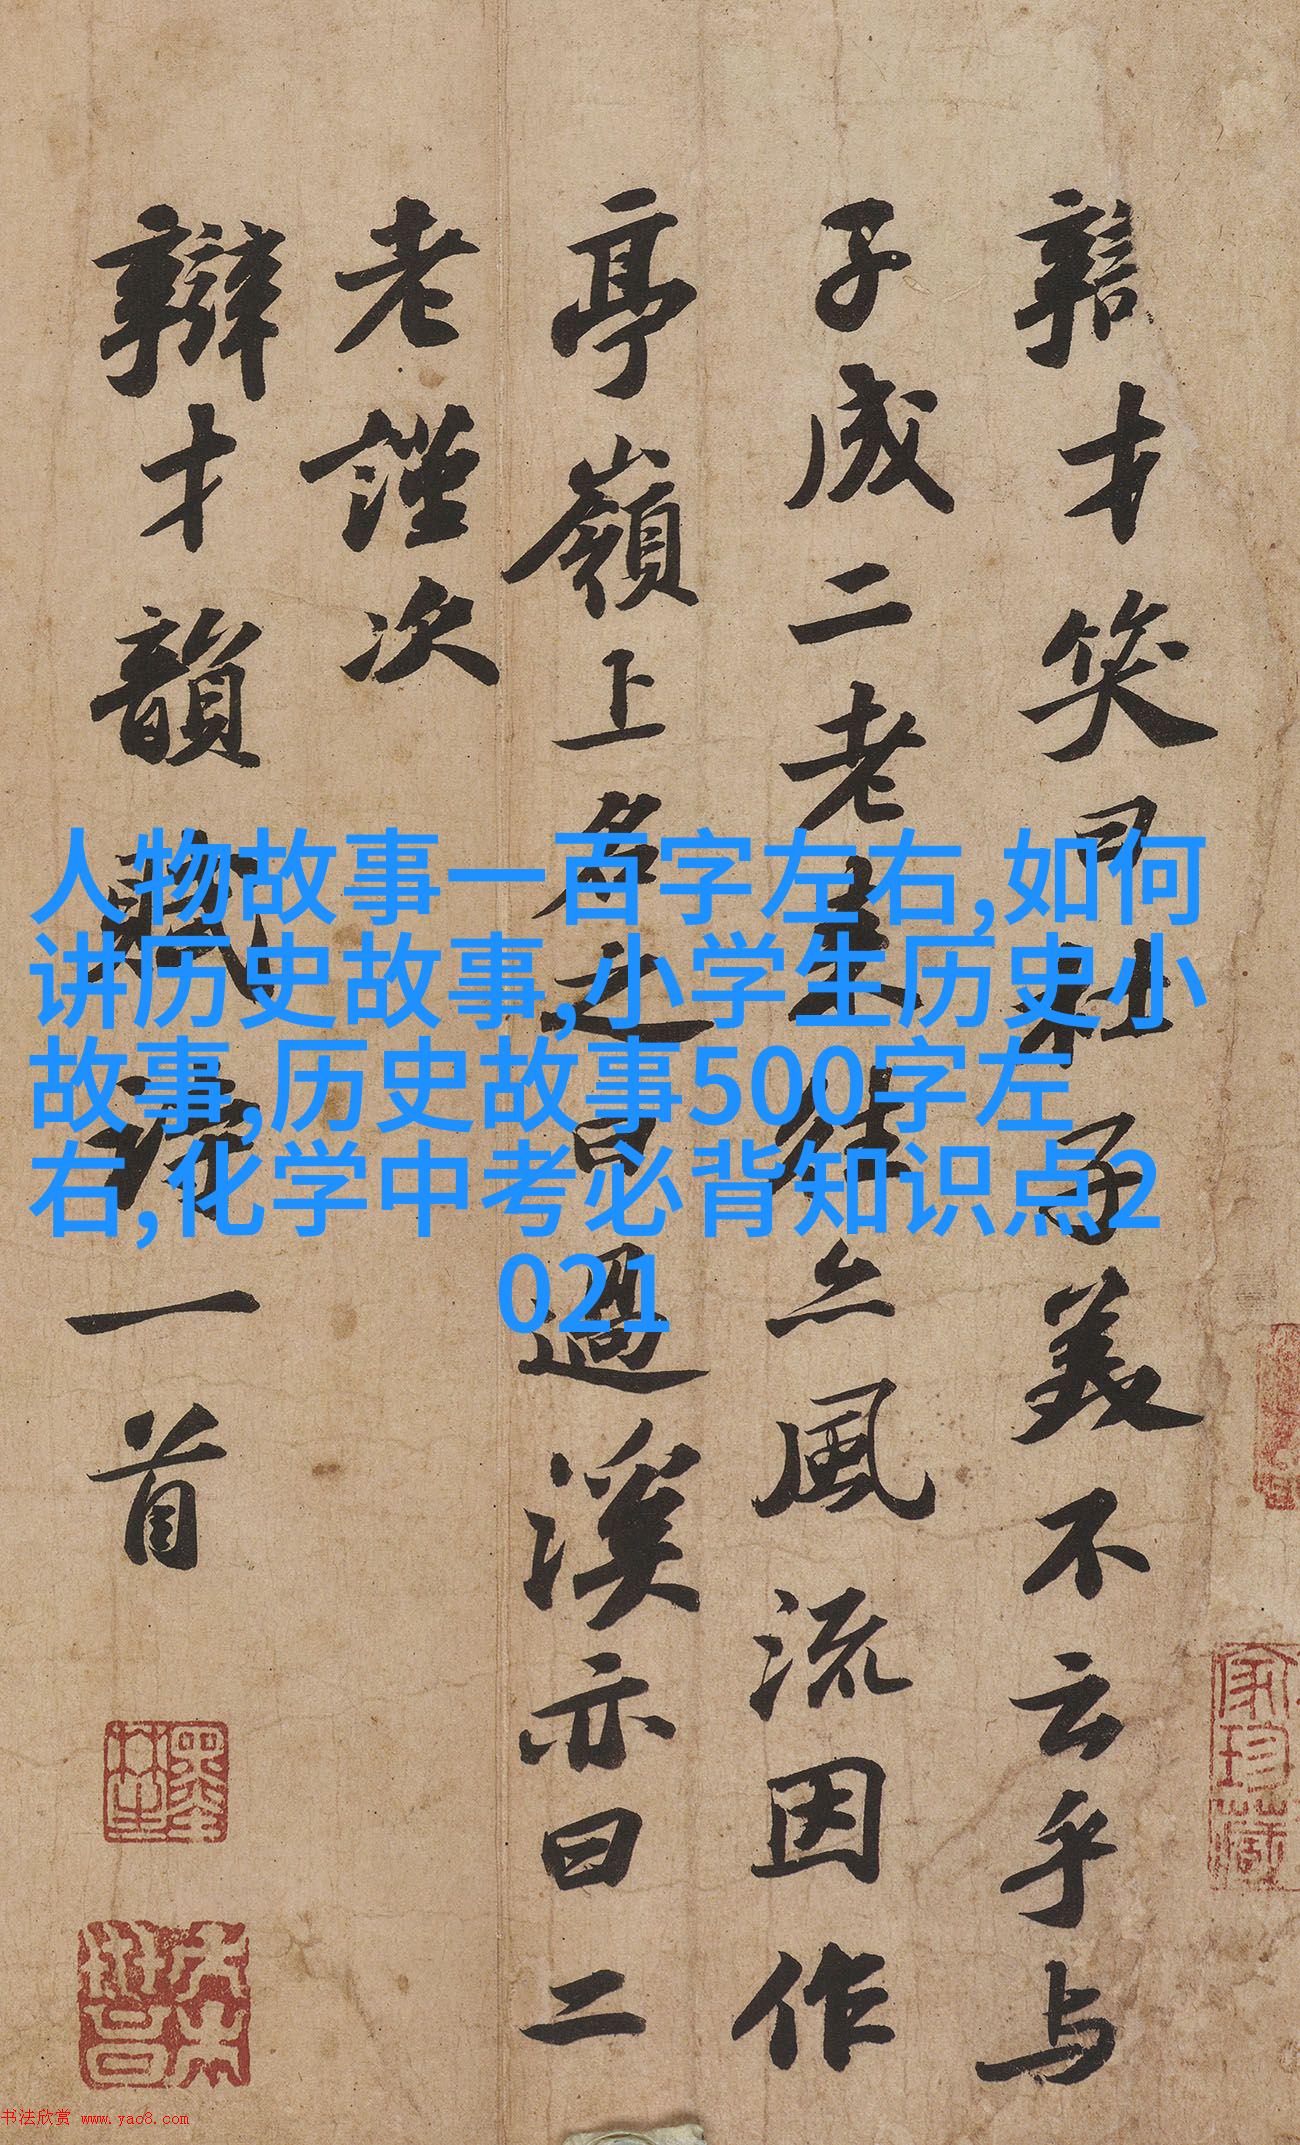 辯才笑曰杜子美不云乎与
子成二老来往亦風流因作
亭嶺上名之曰過溪亦曰二
老謹次
辯才韻賦詩一首
人物故事一百字左右,如何
讲历史故事,小学生历史小
故事,历史故事500字左
右,化学中考必背知识点2
021
家珍藏
书法欣赏 www.yac8.com